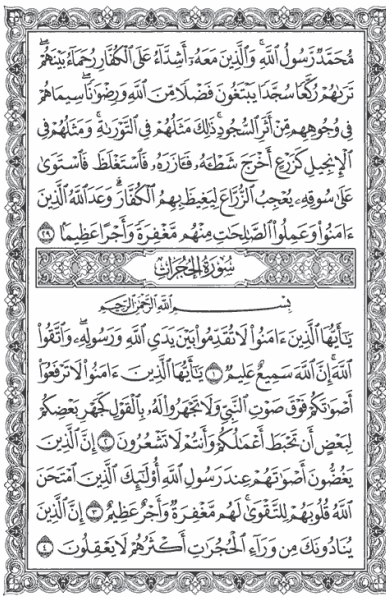 مُّحَمَّدٌ رَّسُولُ ٱللَّهِ ۚ وَٱلَّذِينَ مَعَهُۥٓ أَشِدَّآءُ عَلَى ٱلْكُفَّارِ رُحَمَآءُ بَيْنَهُمْ ۖ
تَرَىٰهُمْ رُكَّعًا سُجَّدًا يَبْتَغُونَ فَضْلًا مِّنَ ٱللَّهِ وَرِضْوَٰنًا ۖ سِيمَاهُمْ
فِى وُجُوهِهِم مِّنْ أَثَرِ ٱلسُّجُودِ ۚ ذَٰلِكَ مَثَلُهُمْ فِى ٱلتَّوْرَىٰةِ ۚ وَمَثَلُهُمْ فِى
ٱلْإِنجِيلِ كَزَرْعٍ أَخْرَجَ شَطْـَٔهُۥ فَـَٔازَرَهُۥ فَٱسْتَغْلَظَ فَٱسْتَوَىٰ
عَلَىٰ سُوقِهِۦ يُعْجِبُ ٱلزُّرَّاعَ لِيَغِيظَ بِهِمُ ٱلْكُفَّارَ ۗ وَعَدَ ٱللَّهُ ٱلَّذِينَ
ءَامَنُوا۟ وَعَمِلُوا۟ ٱلصَّٰلِحَٰتِ مِنْهُم مَّغْفِرَةً وَأَجْرًا عَظِيمًۢا ٢٩
سُورَةُ الْحُجُرَاتِ
بِسْمِ ٱللَّهِ ٱلرَّحْمَٰنِ ٱلرَّحِيمِ
يَٰٓأَيُّهَا ٱلَّذِينَ ءَامَنُوا۟ لَا تُقَدِّمُوا۟ بَيْنَ يَدَىِ ٱللَّهِ وَرَسُولِهِۦ ۖ وَٱتَّقُوا۟
ٱللَّهَ ۚ إِنَّ ٱللَّهَ سَمِيعٌ عَلِيمٌ ١ يَٰٓأَيُّهَا ٱلَّذِينَ ءَامَنُوا۟ لَا تَرْفَعُوٓا۟
أَصْوَٰتَكُمْ فَوْقَ صَوْتِ ٱلنَّبِىِّ وَلَا تَجْهَرُوا۟ لَهُۥ بِٱلْقَوْلِ كَجَهْرِ بَعْضِكُمْ
لِبَعْضٍ أَن تَحْبَطَ أَعْمَٰلُكُمْ وَأَنتُمْ لَا تَشْعُرُونَ ٢ إِنَّ ٱلَّذِينَ
يَغُضُّونَ أَصْوَٰتَهُمْ عِندَ رَسُولِ ٱللَّهِ أُو۟لَٰٓئِكَ ٱلَّذِينَ ٱمْتَحَنَ
ٱللَّهُ قُلُوبَهُمْ لِلتَّقْوَىٰ ۚ لَهُم مَّغْفِرَةٌ وَأَجْرٌ عَظِيمٌ ٣ إِنَّ ٱلَّذِينَ
يُنَادُونَكَ مِن وَرَآءِ ٱلْحُجُرَٰتِ أَكْثَرُهُمْ لَا يَعْقِلُونَ ٤